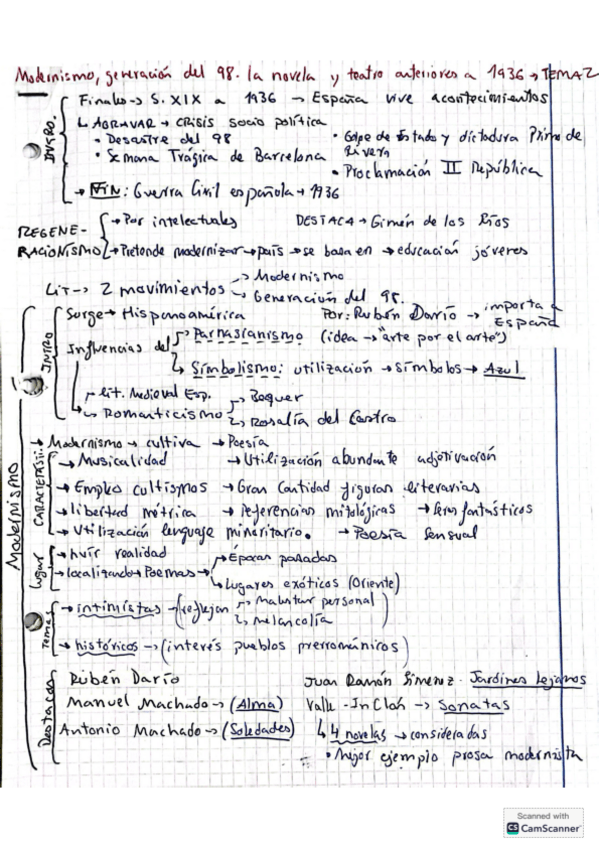 Modernismo, generación del 98. la novela y teatro anteriores a 1936 → TEMA 2
INTRO.
Finales → S. XIX a 1936 → España vive acontecimientos
↳ AGRAVAR → CRISIS socio política
• Desastre del 98
• Golpe de Estado y dictadura Primo de Rivera
• Semana Trágica de Barcelona
• Proclamación II República
→ FIN: Guerra Civil española → 1936
REGENERACIONISMO
→ Por intelectuales DESTACA → Giner de los Ríos
→ Pretende modernizar → país → se basa en → educación jóvenes
Lit → 2 movimientos → Modernismo
→ Generación del 98.
Modernismo
INTRO
Surge → Hispanoamérica Por: Rubén Darío → importa a España
Influencias del → Parnasianismo (idea → "arte por el arte")
↳ Simbolismo: utilización → símbolos → Azul
→ lit. Medieval Esp.
→ Romanticismo → Becquer
→ Rosalía del Castro
→ Modernismo → cultiva → Poesía
CARACTERÍSTI.
→ Musicalidad → Utilización abundante adjetivación
→ Empleo cultismos → Gran Cantidad figuras literarias
→ libertad métrica → referencias mitológicas → seres fantásticos
→ Utilización lenguaje minoritario. → Poesía sensual
lugar
→ huír realidad
→ localizando → Poemas → Épocas pasadas
↳ Lugares exóticos (Oriente)
Temas
→ intimistas → (reflejan → Malestar personal
→ Melancolía)
→ históricos → (interés pueblos prerrománicos)
Destacan
Rubén Darío Juan Ramón Jimenez. Jardines lejanos
Manuel Machado → (Alma) Valle-InClán → Sonatas
Antonio Machado → (Soledades) ↳ 4 novelas → consideradas
• Mejor ejemplo prosa modernista
Scanned with
CS CamScanner